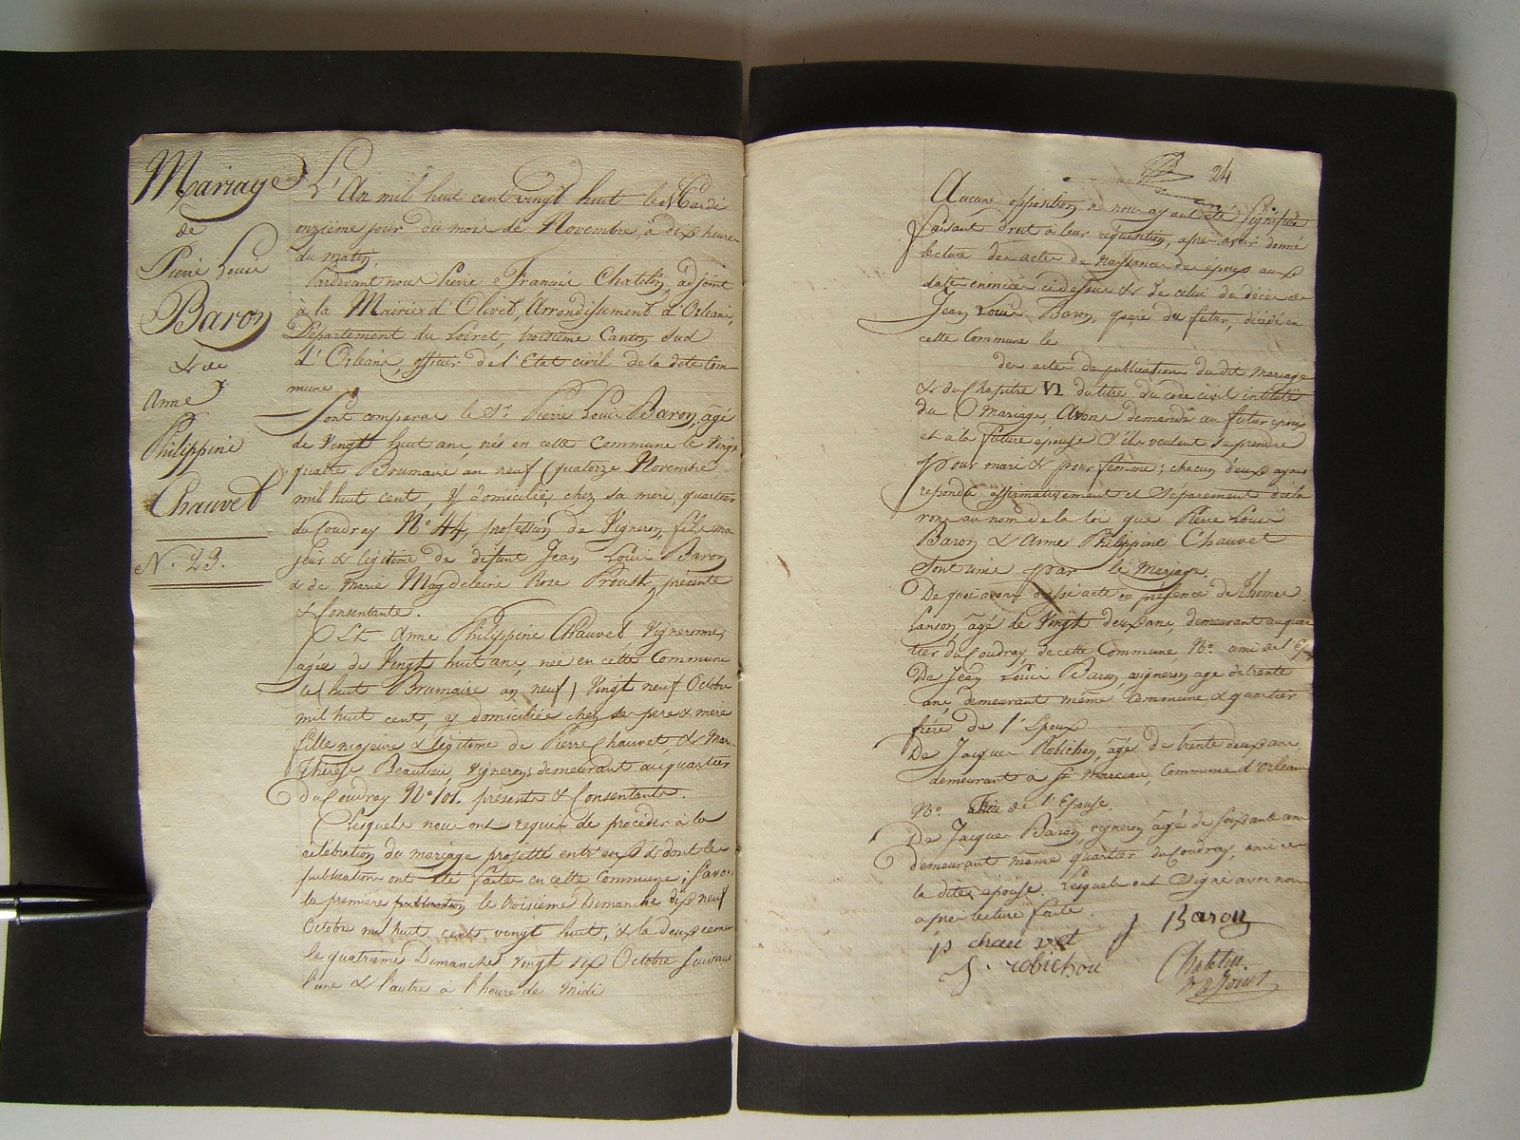 Mariage
de
Pierre Louis
Baron
& de
Anne
Philippine
Chauvet
N.° 23.
L'An mil huit cent vingt huit le Mardi
onzième jour du mois de Novembre, à dix heures
du matin,
Pardevant nous Pierre Francois Chatelin, adjoint
à la Mairie d'Olivet, Arrondissement d'Orléans,
Département du Loiret, troisième Canton sud
d'Orléans, officier de l'Etat civil de la dite Com-
mune
Sont comparus le Sr. Pierre Louis Baron, âgé
de Vingt huit ans, nés en cette Commune le Vingt
quatre Brumaire an neuf (quatorze Novembre
mil huit cent, y domicilié, chez sa mere, quartier
du Coudray N° 44, profession de Vigneron, fils ma
jeur & legitime de défunt Jean Louis Baron
& de Marie Magdeleine Rose Proust, présente
& Consentante.
Et Anne Philippine Chauvet Vigneronne,
agée de Vingt huit ans, née en cette Commune
le (huit Brumaire an neuf) Vingt neuf Octobre
mil huit cent, y domiciliée chez ses pere & mere
fille majeure & légitime de Pierre Chauvet, & Marie
Thérèse Beaulieu, Vignerons demeurant au quartier
du Coudray N° 101. présents & Consentants.
Lesquels nous ont requis de procéder à la
célébration du mariage projetté entr'eux & dont les
publications ont été faites en cette Commune; Savoir
la première publication le troisième Dimanche dix neuf
Octobre mil huit cent vingt huit, & la deuxième
le quatrième Dimanche vingt six Octobre suivant
l'une & l'autre à l'heure de Midi
24
Aucune opposition ne nous ayant été Signifiée
faisant droit à leur réquisition, après avoir donné
lecture des actes de Naissance des époux aux
dates énoncées ci-dessus & de celui du décès de
Jean Louis Baron, père du futur, décédé en
cette Commune le
des actes de publications du dit Mariage
& du Chapitre VI du titre du code civil intitulé
du Mariage, Avons demandé au futur époux
et à la future épouse s'ils veulent se prendre
pour mari & pour femme; chacun d'eux ayant
repondu affirmativement et Séparement décla
rons au nom de la loi que Pierre Louis
Baron & Anne Philippine Chauvet
Sont unis par le Mariage.
De quoi avons dressé acte en présence de Thomas
Lanson, âgé de Vingt deux ans, demeurant au quar
tier du Coudray, de cette Commune, Von. ami de l'Ep
De Jean Louis Baron, vigneron agé de trente
ans, demeurant même Commune & quartier
frère de l'Epoux
De Jacques Robichon, âgé de trente deux ans,
demeurant à St Marceau, Commune d'Orléans
Von. de l'Epouse.
De Jacques Baron, vigneron âgé de soixante ans
demeurant même quartier du Coudray, ami de
la dite epouse. Lesquels ont Signé avec nous
après lecture faite.
p chauvet
J Baron
J. robichon
Chatelin
adjoint